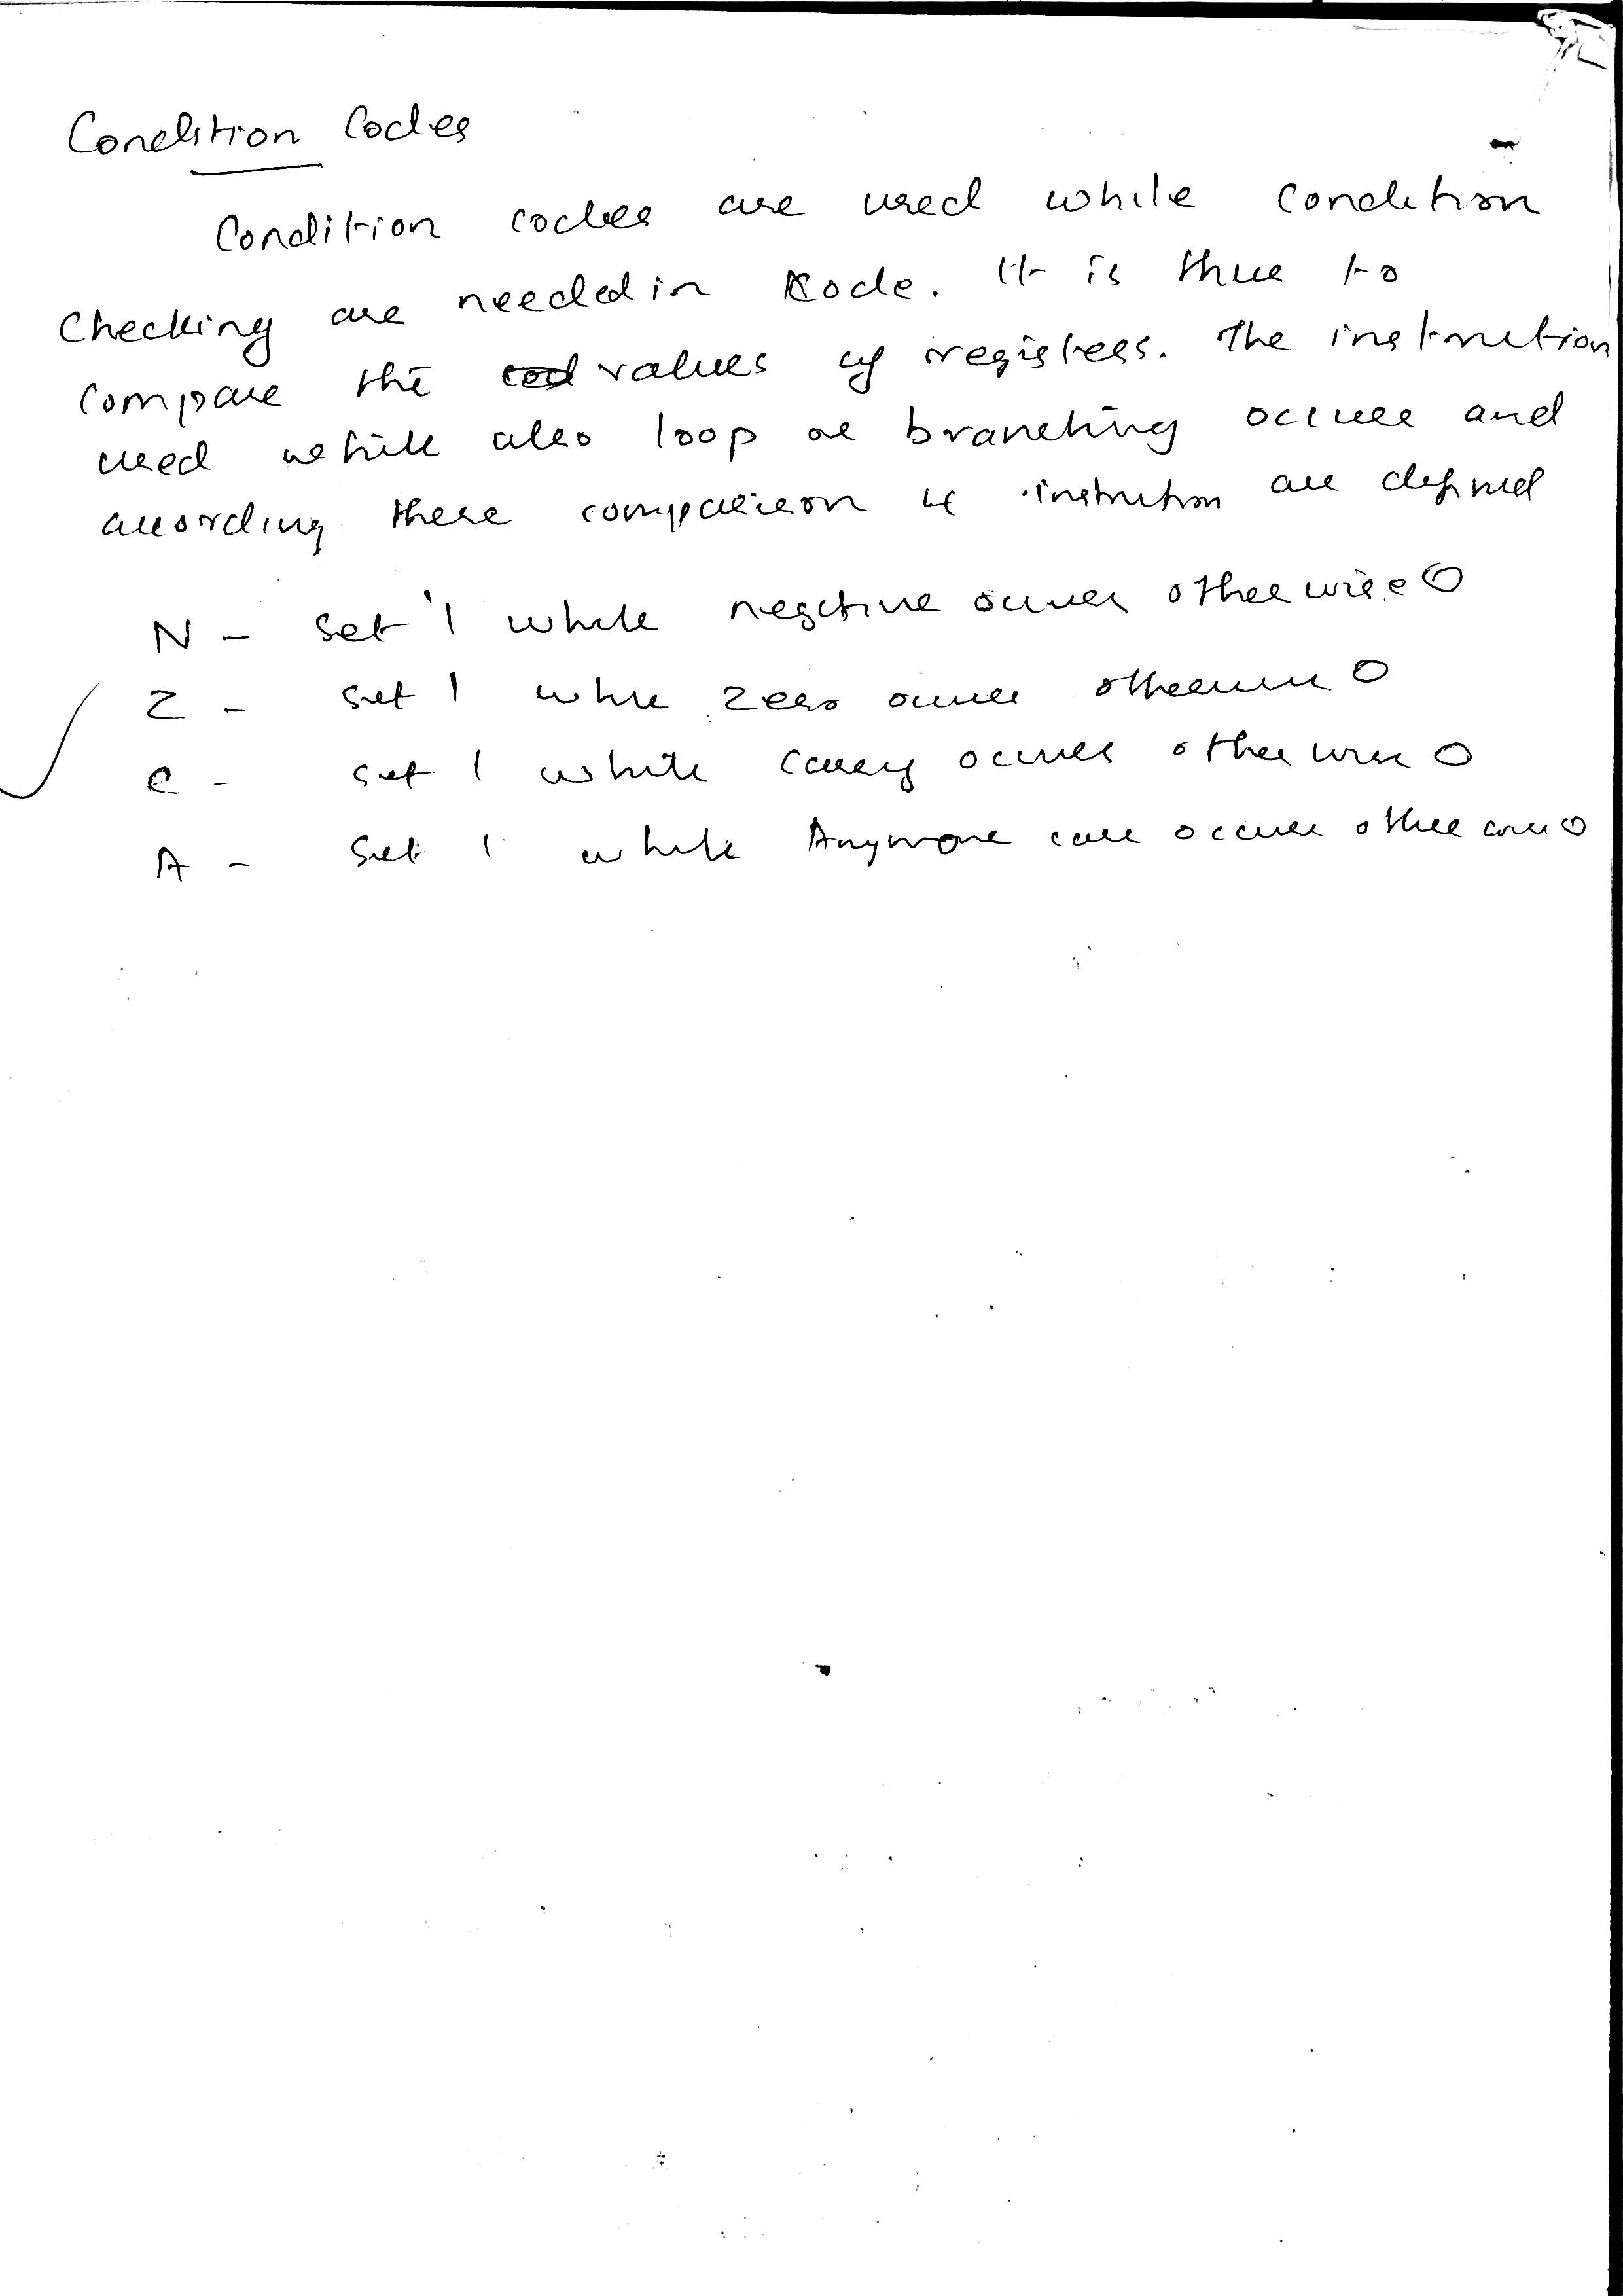 Condition Codes
Condition codes are used while condition
checking are needed in code. It is there to
compare the values of registers. The instruction
used while also loop or branching occurs and
according these comparison 4 instrution are defined
N - set 1 while negative occurs otherwise 0
Z - set 1 while zero occurs otherwise 0
C - set 1 while carry occurs otherwise 0
A - set 1 while Anymore case occurs otherwise 0